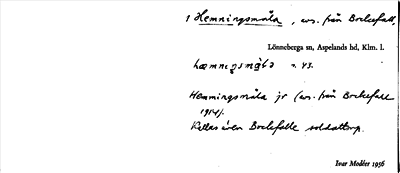 1 Hemningsmåla, avs. från Brekefall,
Lönneberga sn, Aspelands hd, Klm. l.
n. 43.
Hemmingsmåla jr (avs. från Brekefall
1914).
Kallas även Brekefalle soldattorp.
Ivar Modéer 1936